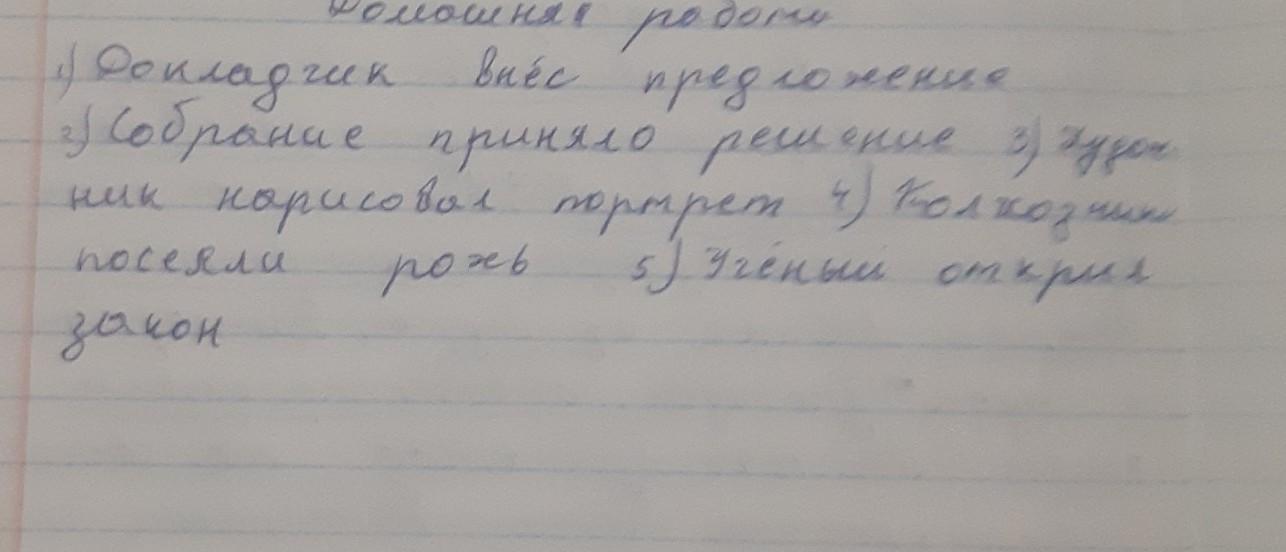 Домашняя работа
1) Докладчик внёс предложение
2) Собрание приняло решение 3) Худож
ник нарисовал портрет 4) Колхозники
посеяли рожь 5) Учёный открыл
закон